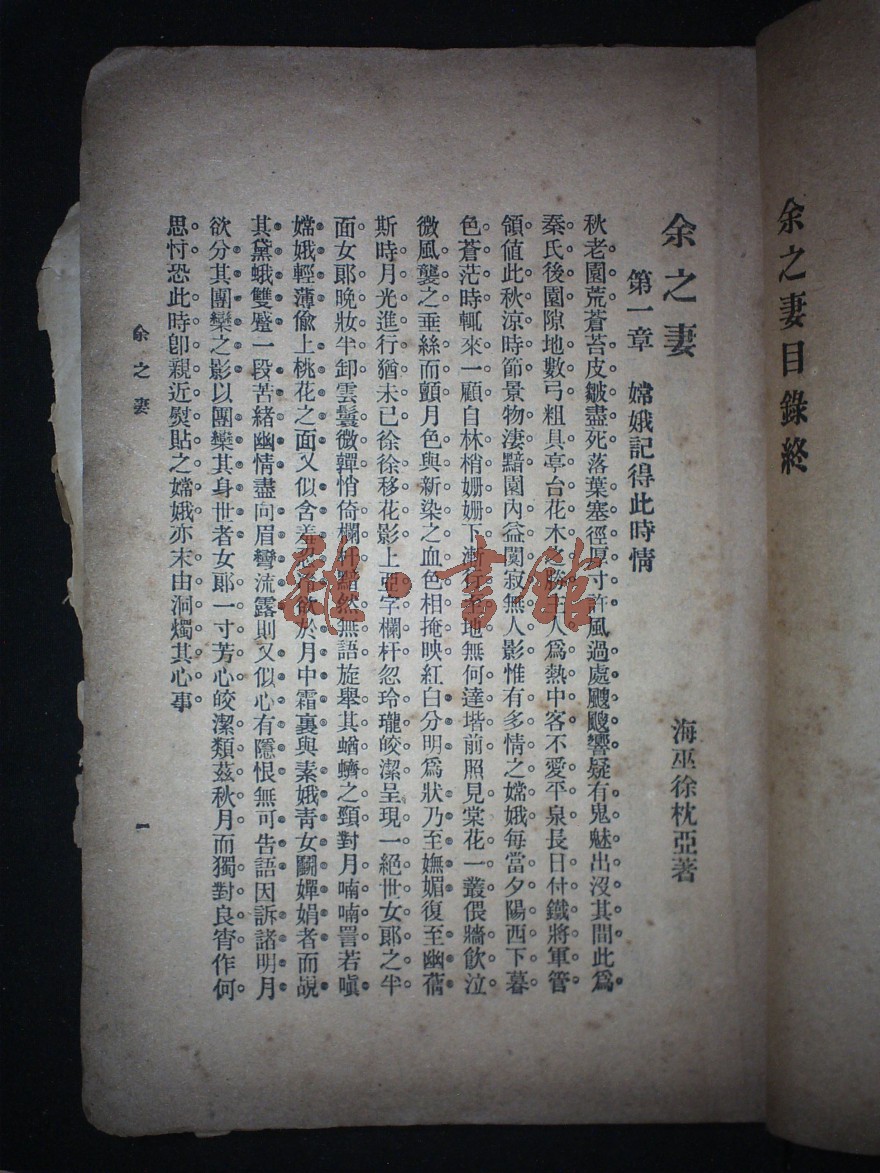 余之妻目錄終
余之妻
海巫徐枕亞著
第一章 嫦娥記得此時情
秋老園荒蒼苔皮皺盡死落葉塞徑厚寸許風過處颼颼響疑有鬼魅出沒其間此爲
秦氏後園隙地數弓粗具亭台花木之勝主人爲熱中客不愛平泉長日付鐵將軍管
領値此秋涼時節景物淒黯園內益闃寂無人影惟有多情之嫦娥每當夕陽西下暮
色蒼茫時輒來一顧自林梢姍姍下漸行至地無何達堦前照見棠花一叢偎牆飮泣
微風襲之垂絲而顫月色與新染之血色相掩映紅白分明爲狀乃至嫵媚復至幽蒨
斯時月光進行猶未已徐徐移花影上亞字欄杆忽玲瓏皎潔呈現一絕世女郞之半
面女郞晚妝半卸雲鬟微嚲悄倚欄杆黯然無語旋舉其蝤蠐之頸對月喃喃詈若嗔
嫦娥輕薄偸上桃花之面又似含羞 欲於月中霜裏與素娥靑女鬭嬋娟者而覘
其黛蛾雙蹙一段苦緖幽情盡向眉彎流露則又似心有隱恨無可告語因訴諸明月
欲分其團欒之影以團欒其身世者女郞一寸芳心皎潔類茲秋月而獨對良宵作何
思忖恐此時卽親近熨貼之嫦娥亦末由洞燭其心事
余之妻
一
雜·書館